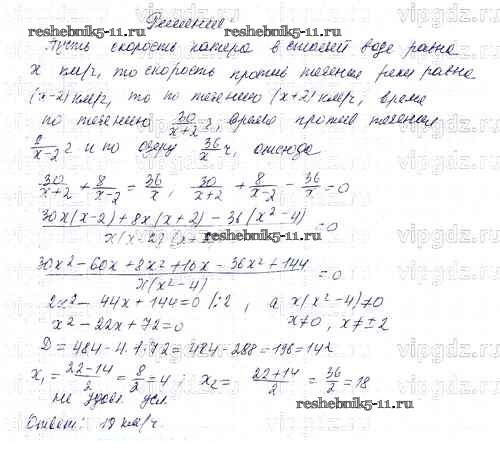 Решение
reshebnik5-11.ru reshebnik5-11.ru
Пусть скорость катера в стоячей воде равна
x км/ч, то скорость против течения реки равна
(x-2) км/ч, то по течению (x+2) км/ч, время
по течению 30/(x+2) ч, время против течения
8/(x-2) ч и по озеру 36/x ч, отсюда
30/(x+2) + 8/(x-2) = 36/x, 30/(x+2) + 8/(x-2) - 36/x = 0
(30x(x-2)+8x(x+2)-36(x²-4))/(x(x-2)(x+2)) = 0
reshebnik5-11.ru
(30x²-60x+8x²+16x-36x²+144)/(x(x²-4)) = 0
2x²-44x+144=0 /:2, а x(x²-4)≠0
x²-22x+72=0 x≠0, x≠±2
D = 484-4·1·72 = 484-288=196=14²
x₁ = (22-14)/2 = 8/2 = 4; x₂ = (22+14)/2 = 36/2 = 18
не удовл. усл.
reshebnik5-11.ru
Ответ: 18 км/ч.
vipgdz.ru